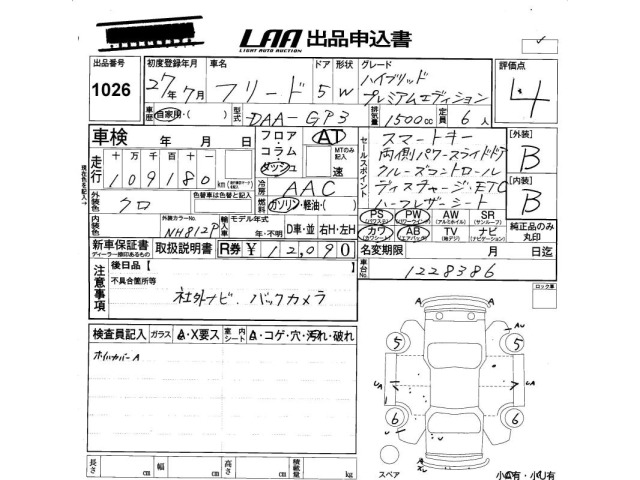 LAA 出品申込書
LIGHT AUTO AUCTION
出品番号 初度登録年月 車名 ドア 形状 グレード 評価点
1026 27年7月 フリード 5 W ハイブリッド プレミアムエディション 4
車歴 自家用・( ) 型式 DAA-GP3 排気量 1500cc 定員 6人
車検 年 月 日 フロア コラム ダッシュ AT MTのみ記入 速
走行 十万千百十
109180 km
冷房 AAC
燃料 ガソリン・軽油・( )
セールスポイント
スマートキー
両側パワースライドドア
クルーズコントロール
ディスチャージ・ETC
ハーフレザーシート
[外装] B
[内装] B
外装色 クロ 色替車は色替と記入
内装色 外装カラーNo. NH812P 輸入車 モデル年式 年・不明 D車・並 右H・左H
PS (パワステ) PW (パワーウインド) AW (アルミホイル) SR (サンルーフ)
カワ (カワシート) AB (エアバック) TV (地デジ) ナビ (ナビゲーション)
純正品のみ丸印
新車保証書 ディーラー捺印あるもの 取扱説明書 R券 ¥12,090 名変期限 月 日迄
車台No. 1228386
注意事項 後日品【
不具合箇所等
社外ナビ、バックカメラ
ロック車
検査員記入 ガラス A・X要ス 室内シート A・コゲ・穴・汚れ・破れ
ホイルカバーA
A A
AU
5 5
UA LA
6 6
スペア
小A有・小U有
長さ cm 幅 cm 高さ cm 積載量 kg